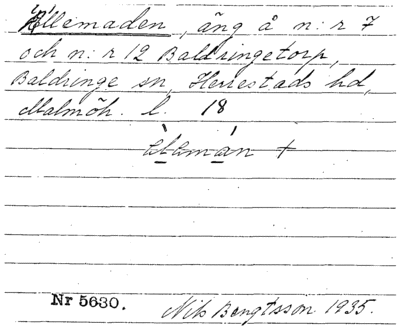 Ällemaden, äng å n:r 7
och n:r 12 Baldringetorp,
Baldringe sn, Herrestads hd,
Malmöh. l. 18
+
Nr 5630. Nils Bengtsson 1935.